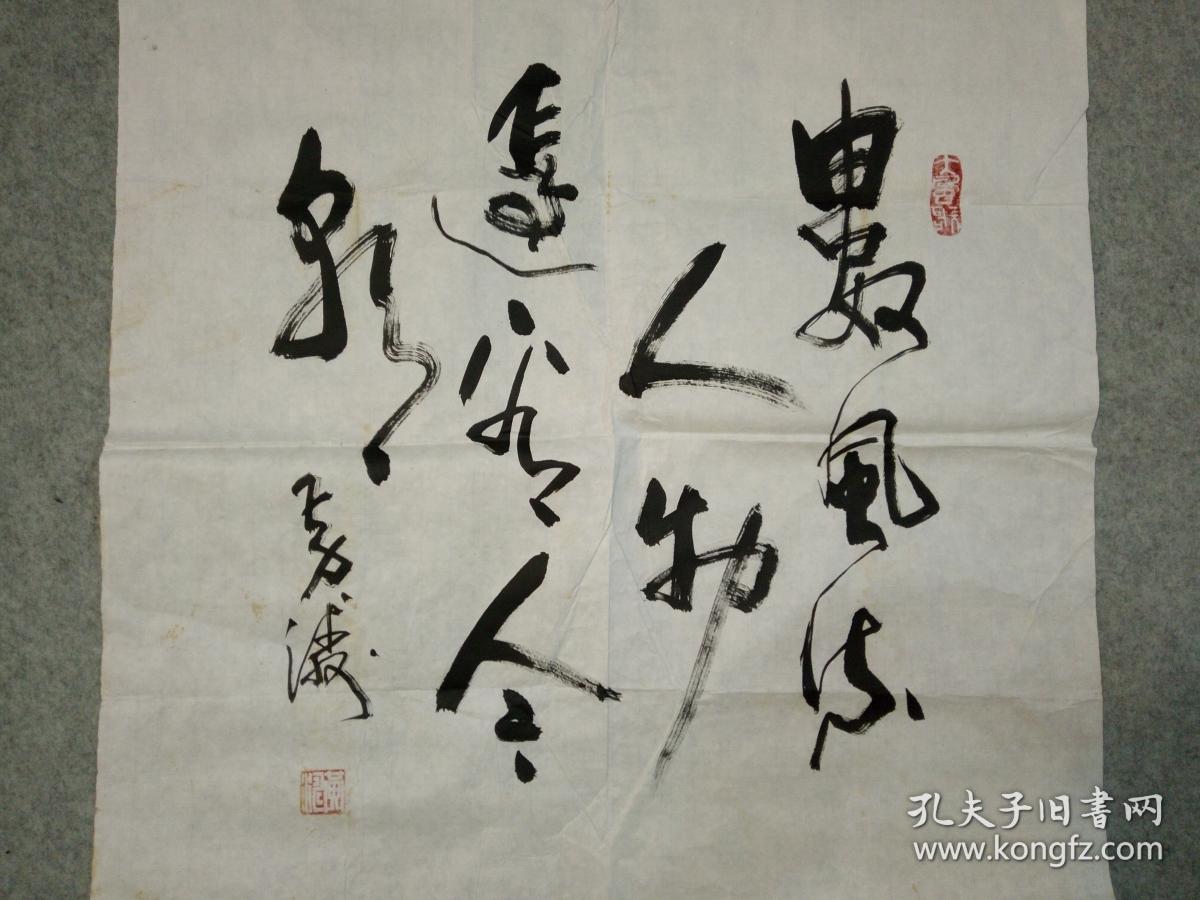 數風流
人物
還看今
朝
孔夫子旧书网
www.kongfz.com